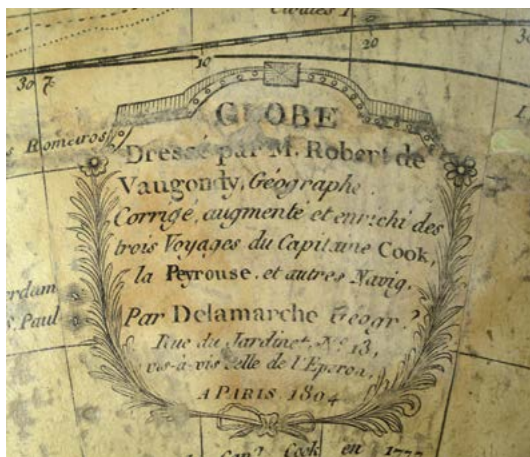 10
20
30
GLOBE
s Romeiros
Dressé par M. Robert de
Vaugondy, Géographe.
Corrigé, augmenté et enrichi des
trois Voyages du Capitaine Cook,
la Peyrouse, et autres Navig.
Par Delamarche Géogr.
Rue du Jardinet, No. 13,
vis-à-vis celle de l'Eperon,
A PARIS 1804
rdam
Paul
Capᵉ Cook en 1777